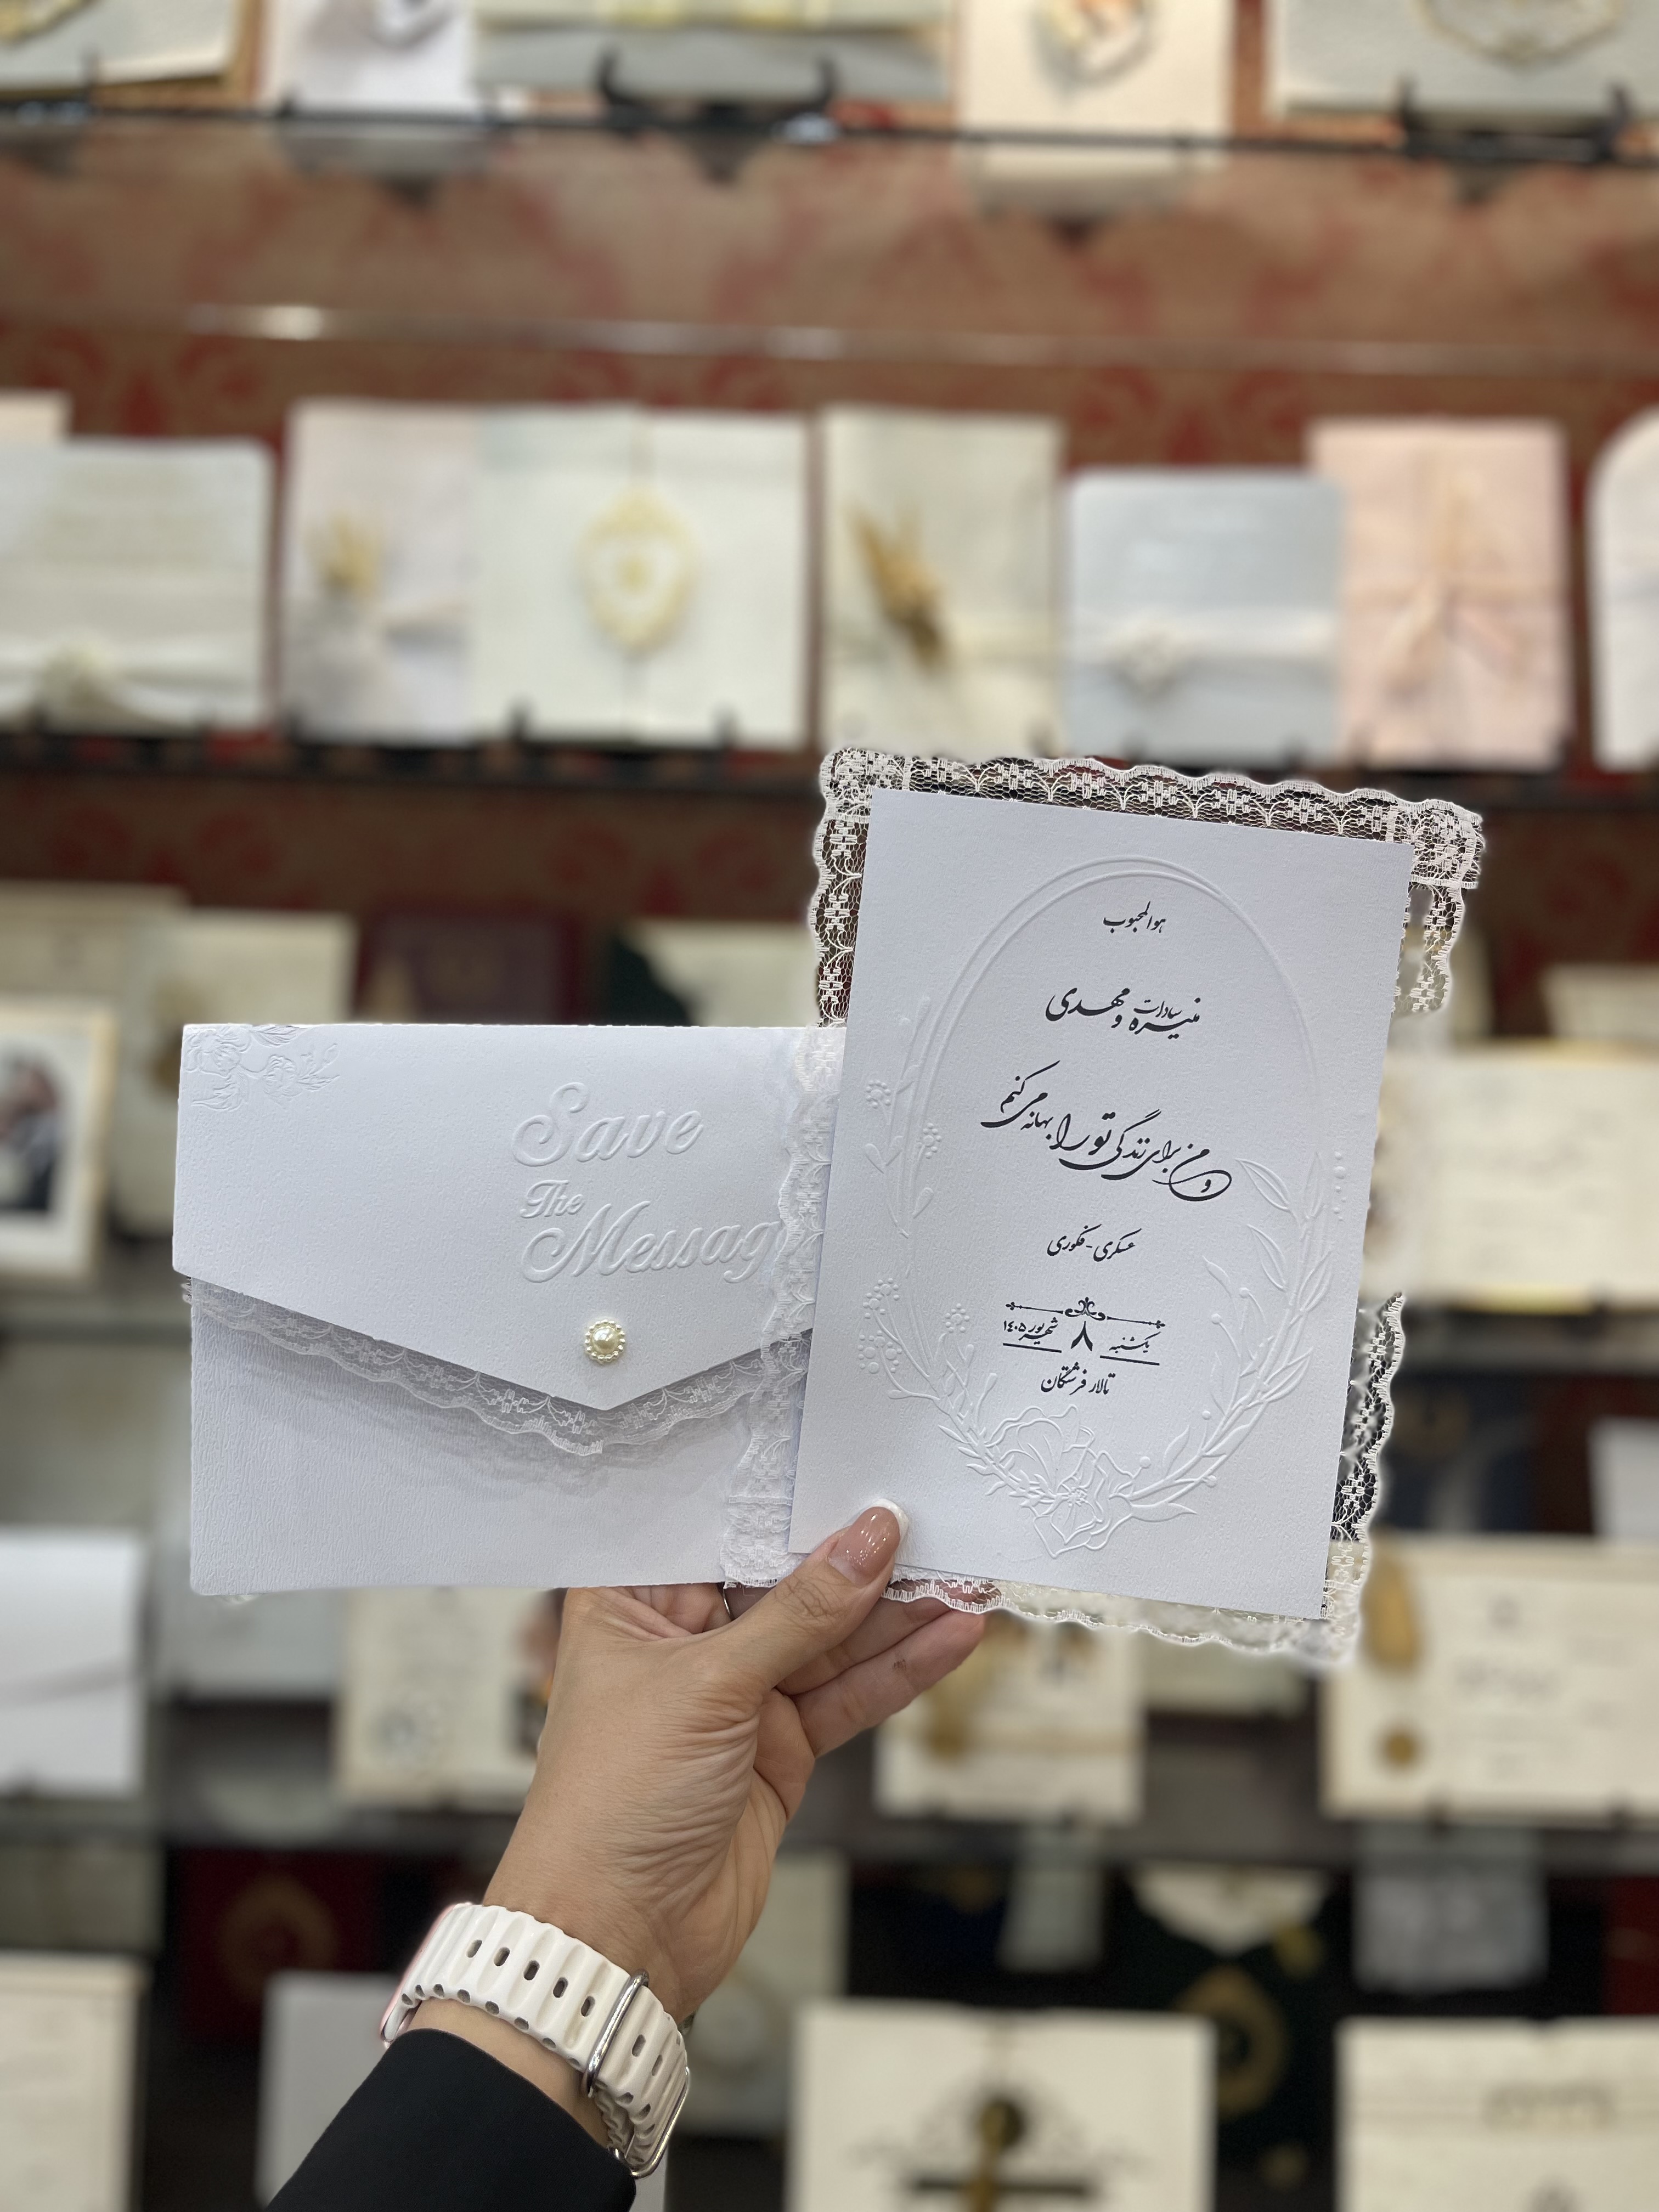 Save
The
Messag
هوالمحبوب
منیره سادات و مهدی
و من برای زندگی تو را بهانه می‌کنم
عسکری - فکوری
یکشنبه ۸ شهریور ۱۴۰۵
تالار فرشتگان